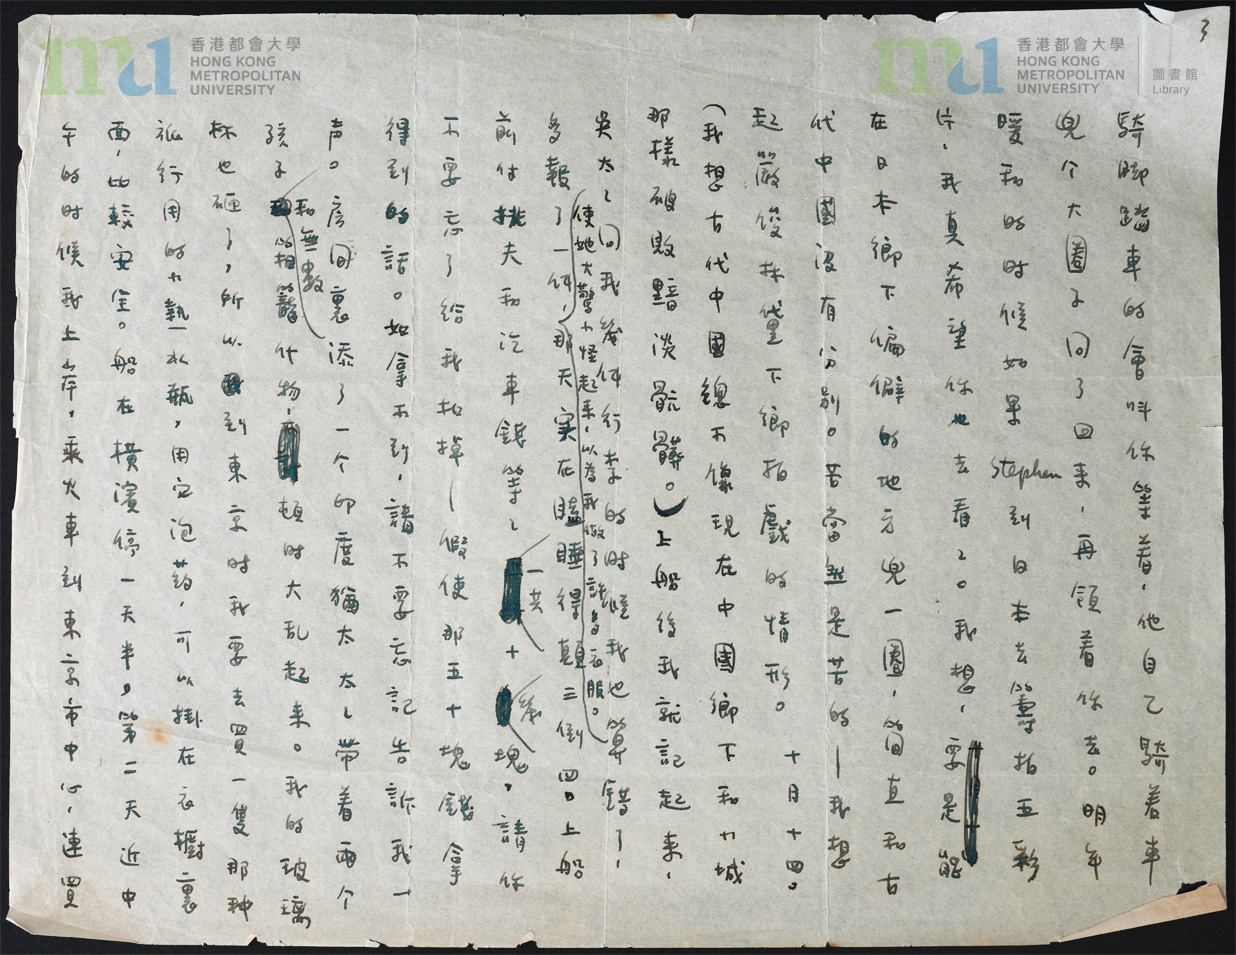 3
香港都會大學
HONG KONG
METROPOLITAN
UNIVERSITY
香港都會大學
HONG KONG
METROPOLITAN
UNIVERSITY
圖書館
Library
騎脚踏車的會叫你等着，他自己騎着車
兜个大圈子回了回来，再領着你去。明年
暖和的时候如果Stephen到日本去籌拍五彩
片，我真希望你也去看看。我想，要是能
在日本鄉下偏僻的地方兜一圈，简直和古
代中國没有分别。苦當然是苦的—我想
起嚴俊林黛下鄉拍戲的情形。 十月十四。
（我想古代中國總不像現在中國鄉下和小城
那樣破敗黯淡骯髒。）上船後我就記起来，
吳太太问我幾件行李的时候我也算錯了，
使她大驚小怪起来，以為我做了許多衣服。
多報了一件，那天实在瞌睡得顛三倒四。上船
前付挑夫和汽車錢等等一共十幾塊，請你
不要忘了给我扣掉—假使那五十塊錢拿
得到的話。如拿不到，請不要忘記告訴我一
声。房间裏添了一个印度猶太太太帶着两个
孩子和無數箱籠什物，頓时大乱起来。我的玻璃
杯也砸了，所以到東京时我要去買一隻那种
旅行用的小熱水瓶，用它泡药，可以掛在衣櫥裏
面，比較安全。船在橫濱停一天半，第二天近中
午的时候我上岸，乘火車到東京市中心，連買